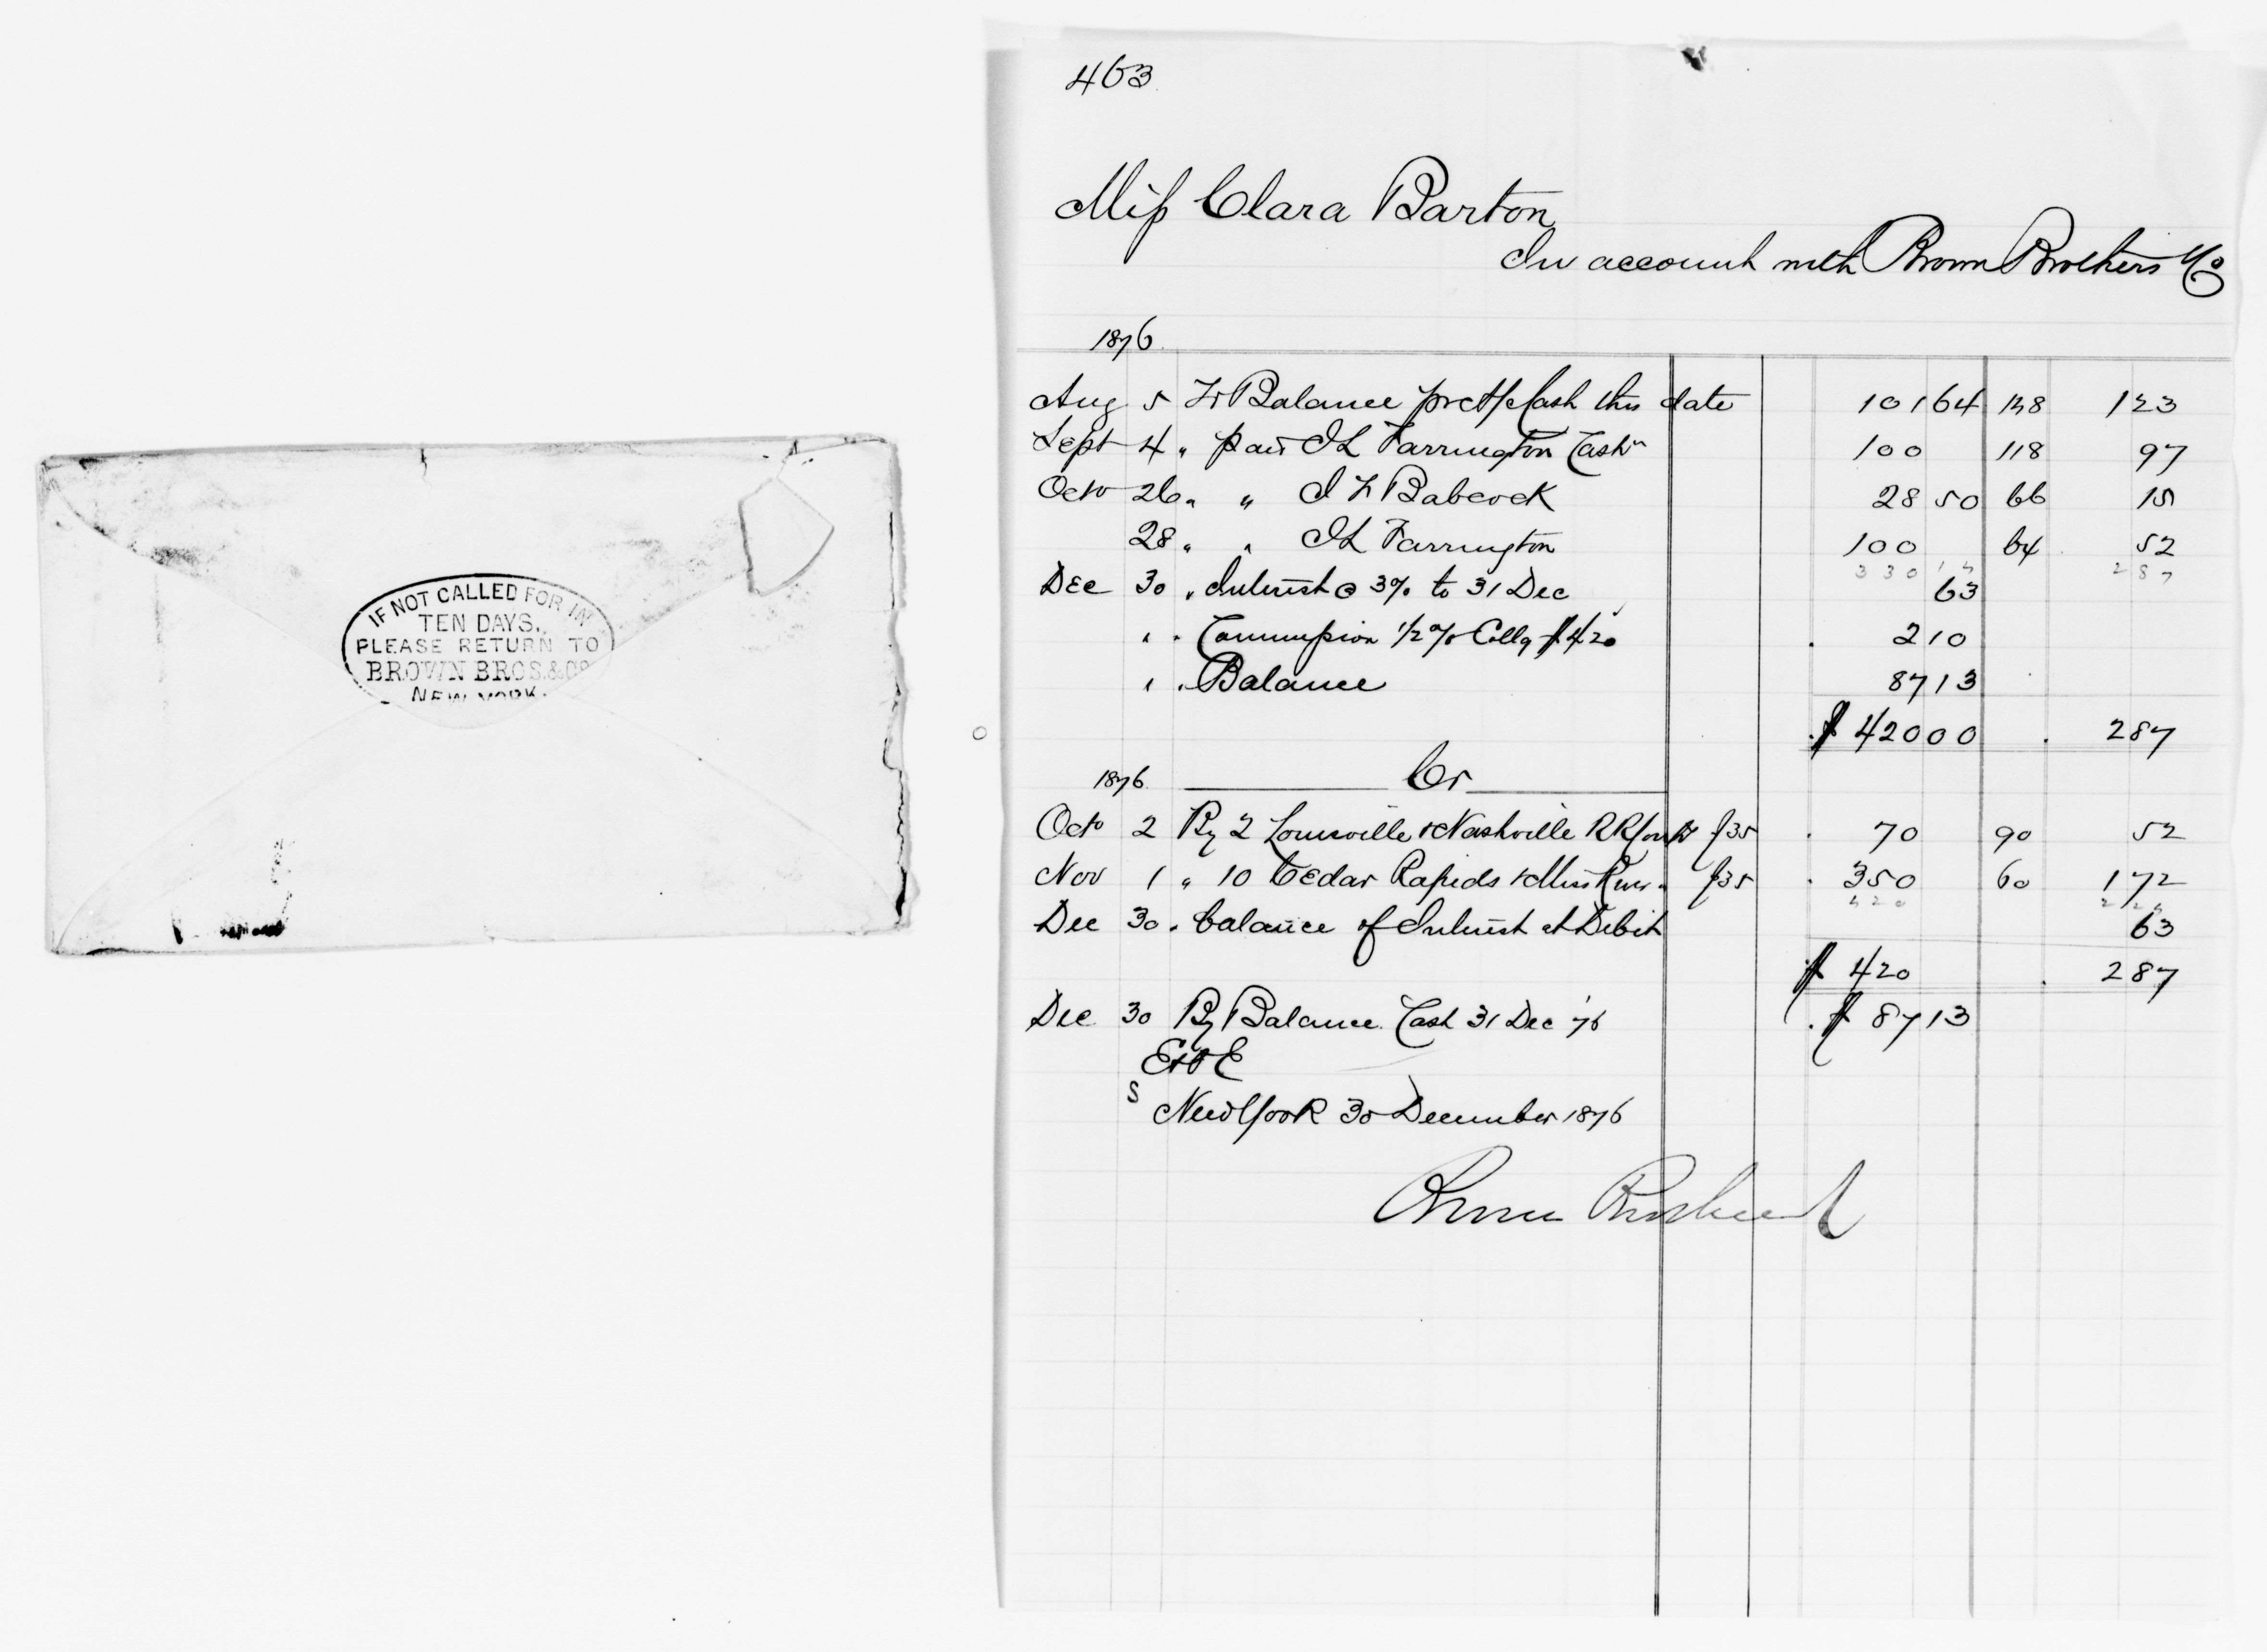 IF NOT CALLED FOR IN
TEN DAYS,
PLEASE RETURN TO
BROWN BROS. & CO
NEW YORK.
463
Miss Clara Barton
In account with Brown Brothers & Co
1876
Aug 5 To Balance pr a/c Cash this date 101 64 148 1 23
Sept 4 " paid I L Farrington Cash 100 118 97
Octo 26 " " I F Babcock 28 50 66 15
28 " " I L Farrington 100 64 52
330 14 2 87
Dec 30 " Interest @ 3% to 31 Dec 63
" " Commission 1/2 % Collg $420 2 10
" " Balance 87 13
$ 420 00 2 87
1876 Cr
Octo 2 By 2 Louisville & Nashville RR Coups $35 70 90 52
Nov 1 " 10 Cedar Rapids & Miss River " $35 350 60 1 72
420 2 24
Dec 30 " balance of Interest at Debit 63
$ 420 2 87
Dec 30 By Balance Cash 31 Dec '76 $ 87 13
E & O E
S
New York 30 December 1876
Brown Brothers & Co